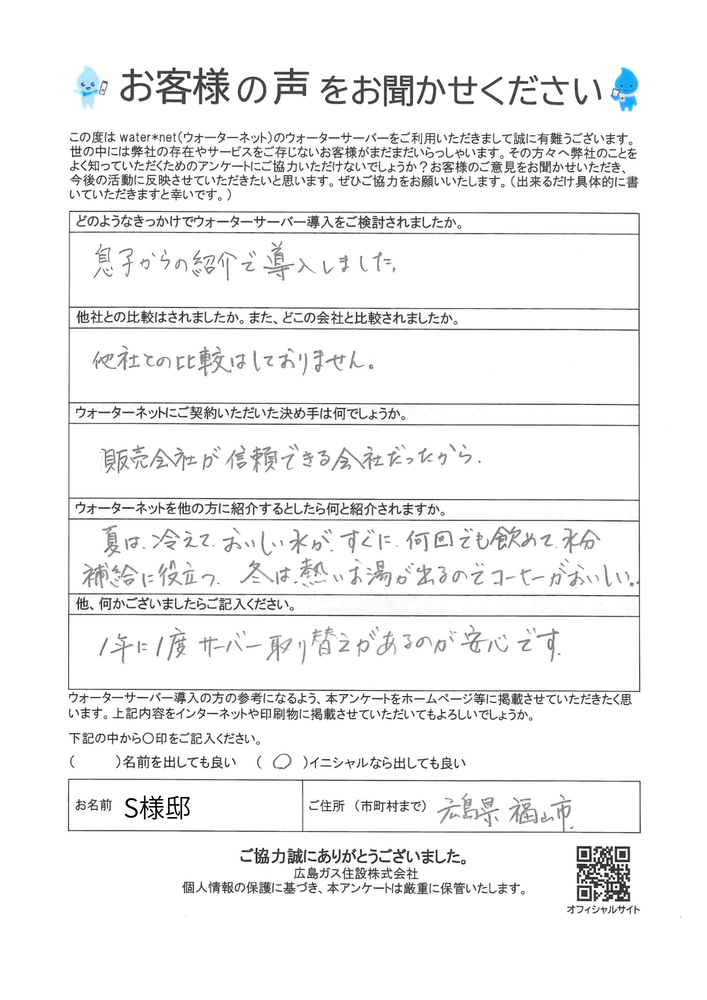 お客様の声をお聞かせください
この度は water*net(ウォーターネット)のウォーターサーバーをご利用いただきまして誠に有難うございます。
世の中には弊社の存在やサービスをご存じないお客様がまだまだいらっしゃいます。その方々へ弊社のことを
よく知っていただくためのアンケートにご協力いただけないでしょうか？お客様のご意見をお聞かせいただき、
今後の活動に反映させていただきたいと思います。ぜひご協力をお願いいたします。（出来るだけ具体的に書
いていただきますと幸いです。）
どのようなきっかけでウォーターサーバー導入をご検討されましたか。
息子からの紹介で導入しました。
他社との比較はされましたか。また、どこの会社と比較されましたか。
他社との比較はしておりません。
ウォーターネットにご契約いただいた決め手は何でしょうか。
販売会社が信頼できる会社だったから.
ウォーターネットを他の方に紹介するとしたら何と紹介されますか。
夏は、冷えて、おいしい水が、すぐに、何回でも飲めて、水分
補給に役立つ、冬は、熱いお湯が出るのでコーヒーがおいしい。
他、何かございましたらご記入ください。
1年に1度サーバー取り替えがあるのが安心です.
ウォーターサーバー導入の方の参考になるよう、本アンケートをホームページ等に掲載させていただきたく思
います。上記内容をインターネットや印刷物に掲載させていただいてもよろしいでしょうか。
下記の中から〇印をご記入ください。
(　　)名前を出しても良い　( 〇 )イニシャルなら出しても良い
お名前 S様邸 ご住所 (市町村まで) 広島県福山市.
ご協力誠にありがとうございました。
広島ガス住設株式会社
個人情報の保護に基づき、本アンケートは厳重に保管いたします。
オフィシャルサイト